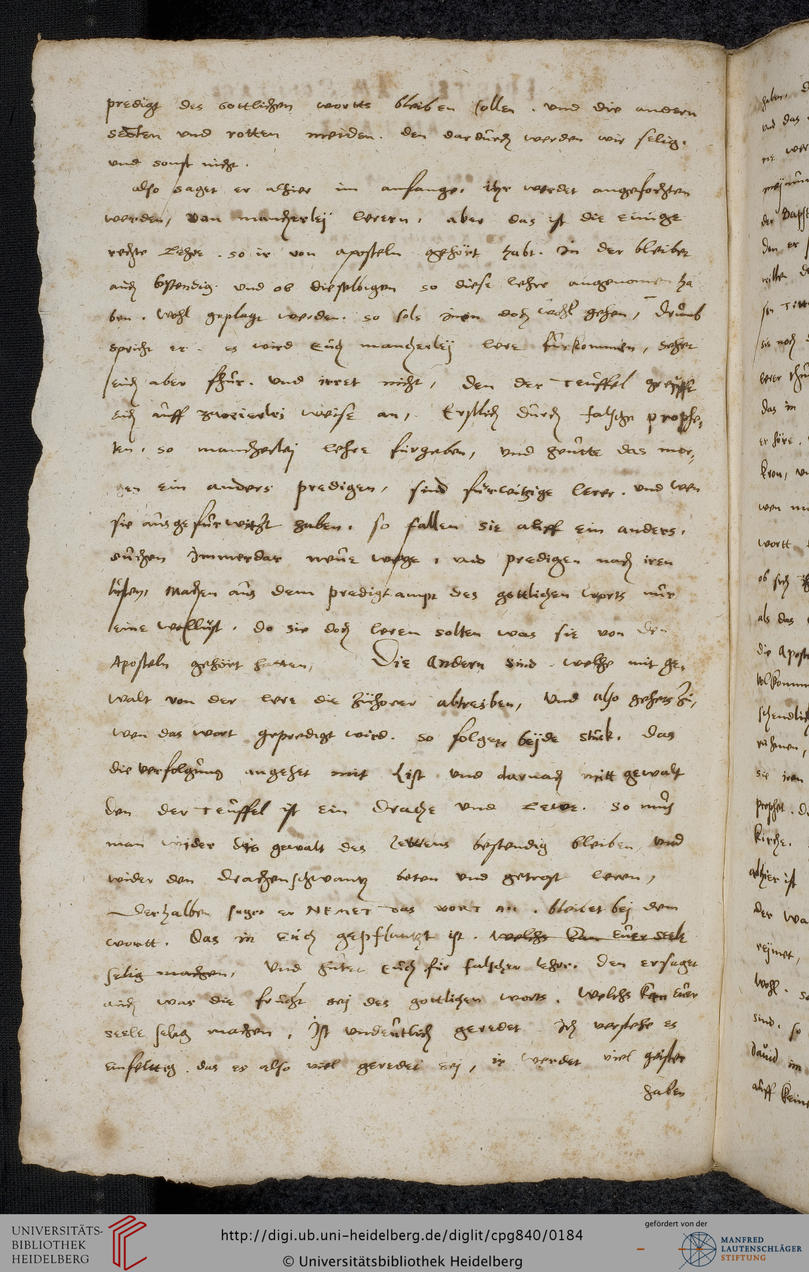 predigt des gottlichen worts bleiben sollen . und die andern
secten und rotten meiden . den dardurch werden wir selig .
und sonst nicht .
also saget er alhier im anfange . ihr werdet angefochten
werden / von mancherlej lerern . aber das ist die einige
rechte Lehre . so ir von aposteln gehört habt . In der bleibet
auch bestendig . und ob dieselbigen so diese lehre angenomen ha
ben . wohl geplagt werden . so sols inen doch wohl gehen / drumb
spricht er . es wird Euch mancherlej lere fürkommen / sehet
Euch aber für . und irret nicht / den der Teuffel greifft
Euch auff zweierlei weise an / . Erstlich durch falsche prophe,
ten . so mancherlej lehre fürgeben / und heutte das mor,
gen ein anders predigen / sind fürwitzige lerer . und wen
sie ausgefürwitzt haben . so fallen sie auff ein anders .
suchen Immerdar neue wege . und predigen nach iren
lüsten / Machen aus dem predigtampt des gottlichen worts nur
seine wollust . do sie doch leren solten was sie von den
Aposteln gehört hatten / Die Andern sind . welche mit ge,
walt von der lere die zuhorer abtreiben / Und also gehets zu /
wen das wort gepredigt wird . so folgen bejde stuck . das
die verfolgung angehet mit List und darnach mitt gewalt
den der Teuffel ist ein Drache und Lewe . so mus
man wider die gewalt des Lewens bestendig bleiben und
wider den Drachenschwantz beten und getrost leren /
Derhalben saget er NEMET das WORT AN . bleibet bej dem
wortt . das in Euch gepflantzt ist . welchs kan Euer seele
selig machen / Und hutet Euch für falscher lehre . den er saget
auch was die frucht sej des gottlichen worts . Welchs kan Euer
seele selig machen . Ist undeutlich geredet Ich verstehe es
einfeltig . das es also viel geredet sej / ir werdet viel geister
haben
UNIVERSITÄTS-
BIBLIOTHEK
HEIDELBERG
http://digi.ub.uni-heidelberg.de/diglit/cpg840/0184
© Universitätsbibliothek Heidelberg
gefördert von der
MANFRED
LAUTENSCHLÄGER
STIFTUNG